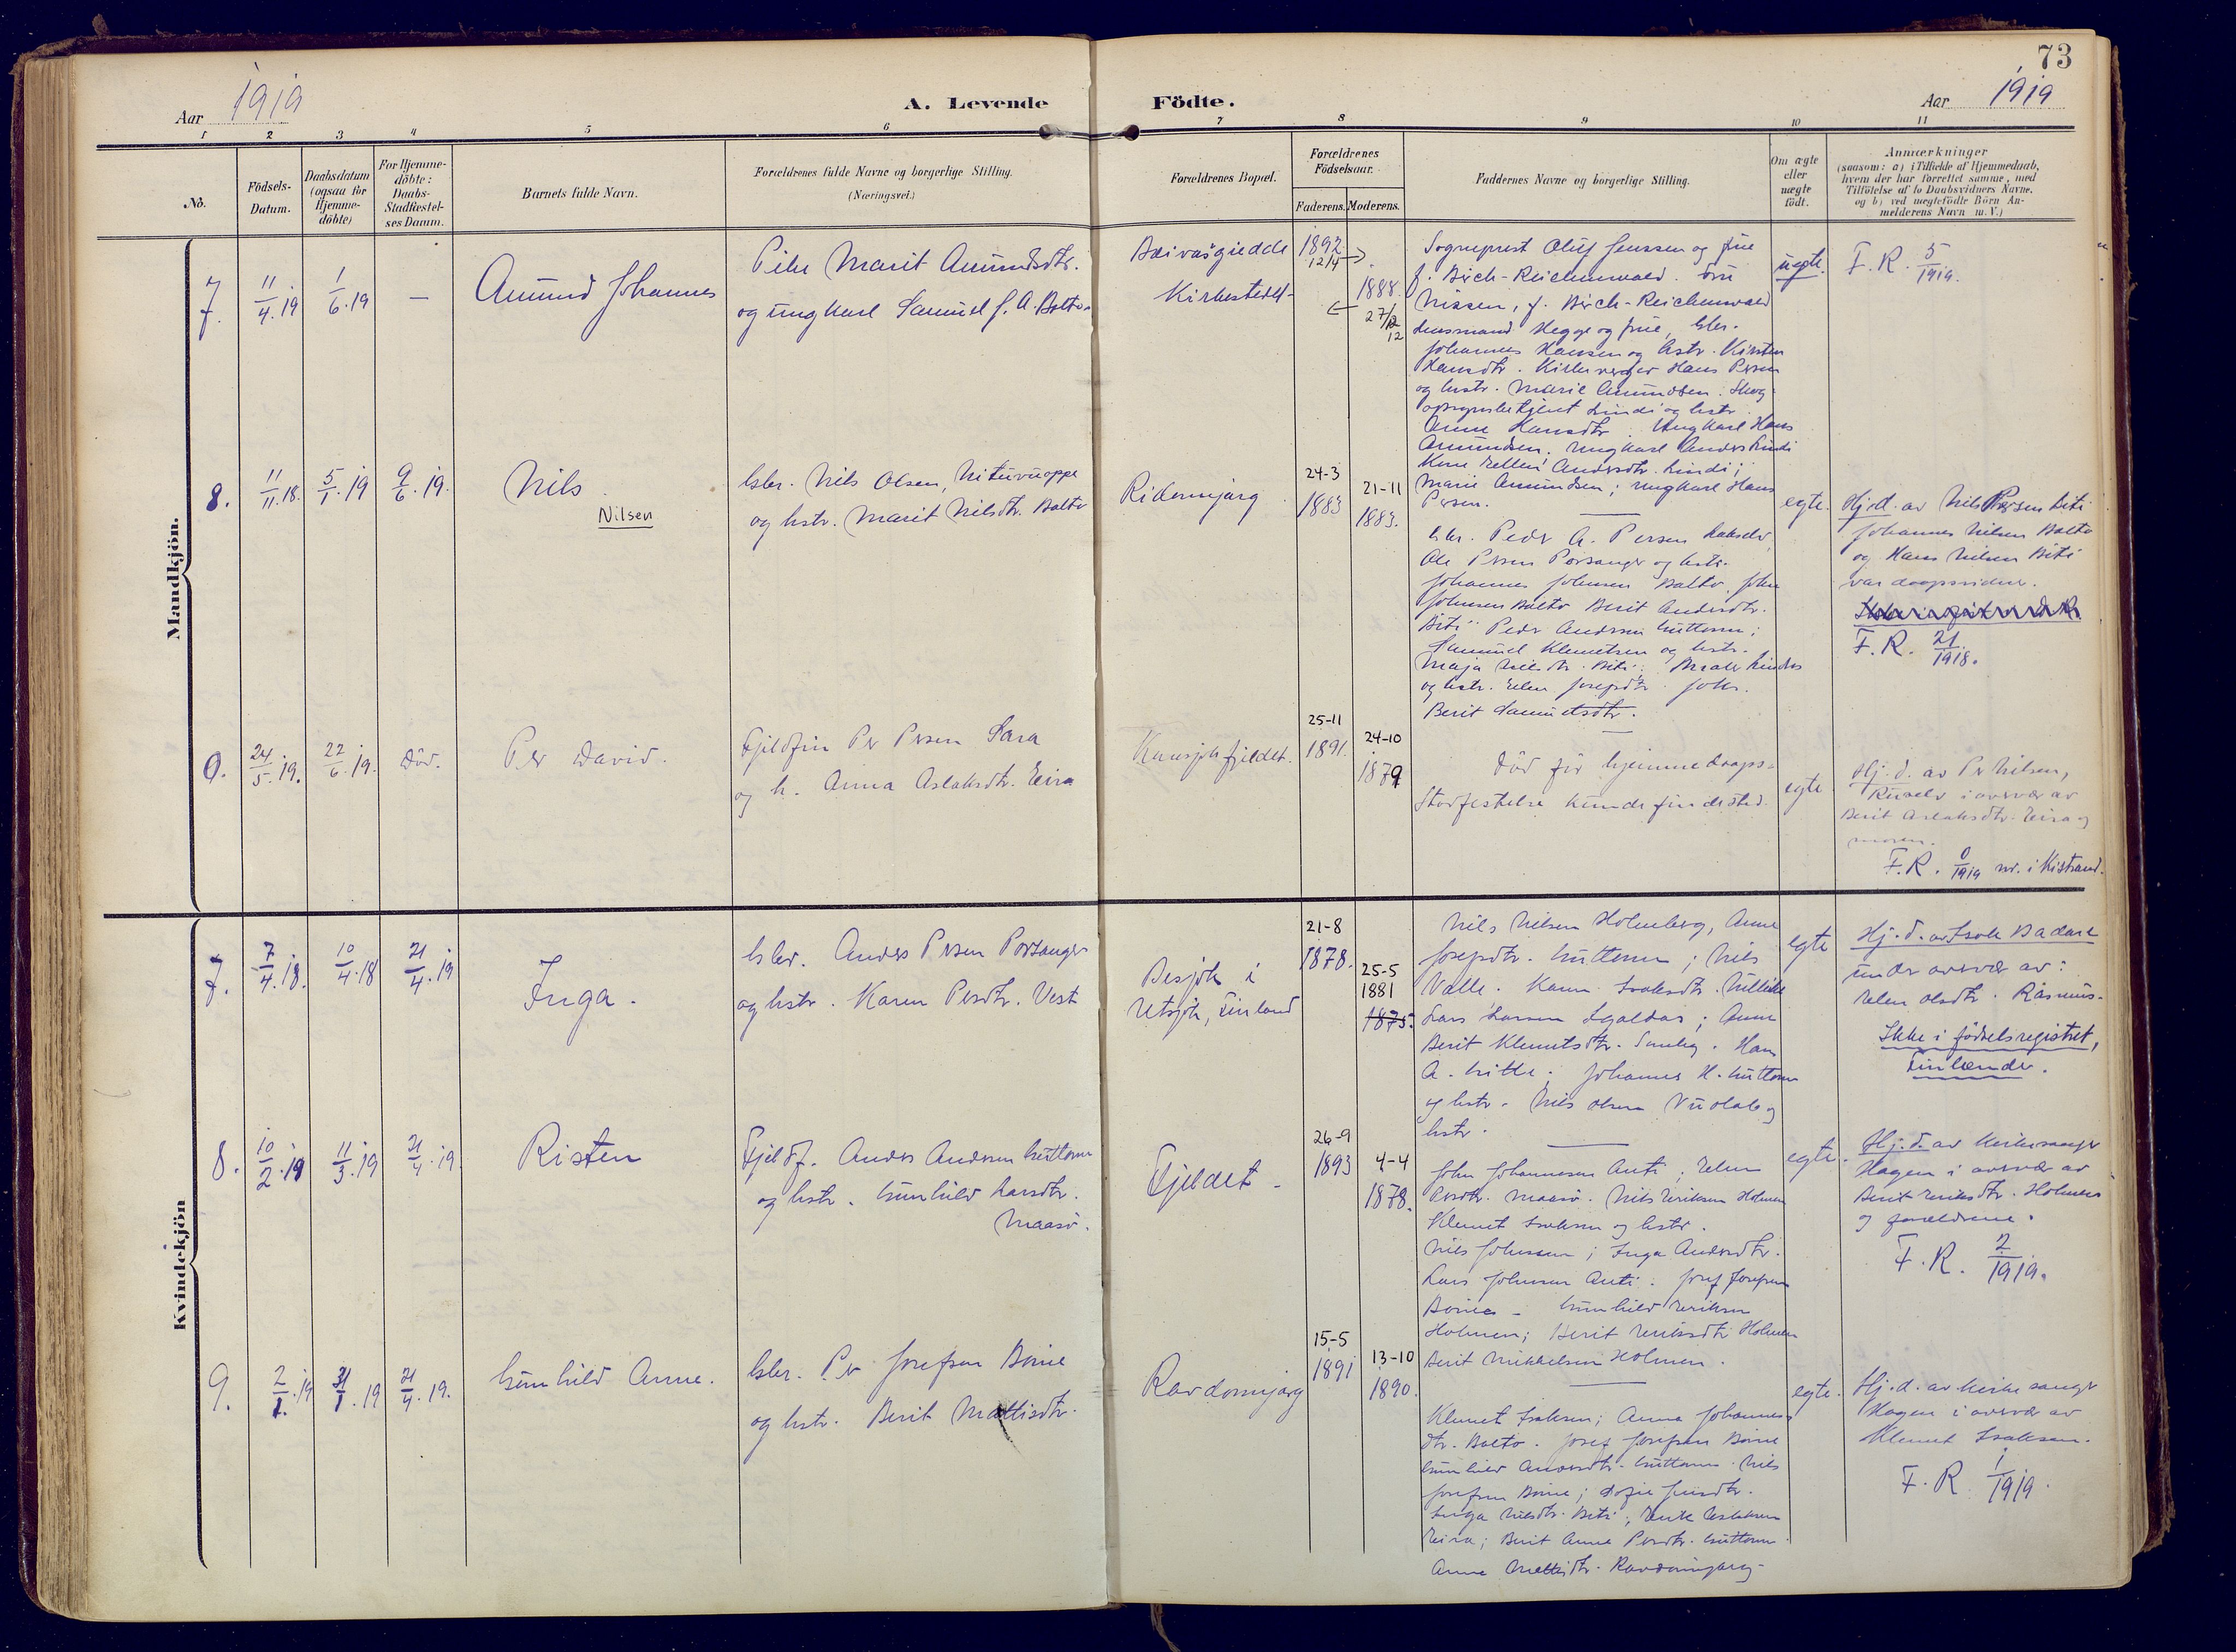 73
Aar 1919
A. Levende Födte.
Aar 1919
1 2 3 4 5 6 7 8 9 10 11
No.
Födsels-
Datum.
Daabsdatum
(ogsaa for
Hjemme-
döbte)
For Hjemme-
döbte:
Daabs-
Stadfæstel-
ses Datum.
Barnets fulde Navn.
Forældrenes fulde Navne og borgerlige Stilling.
(Næringsvei.)
Forældrenes Bopæl.
Forældrenes
Födselsaar.
Faderens. Moderens.
Faddernes Navne og borgerlige Stilling.
Om ægte
eller
uægte
födt.
Anmærkninger
(saasom: a) i Tilfælde af Hjemmedaab,
hvem der har forrettet samme, med
Tilföielse af to Daabsvidners Navne.
og b) ved uægtefödte Börn An-
melderens Navn m. V.)
Mandkjön.
7.
11/4.19
1/6.19
—
Amund Johannes
Pike Marit Amundsdtr.
og ungkarl Samuel J. A. Balto
Kirkestedet
1892
12/4
1888.
27/12
12
Sogneprest Oluf Jenssen og frue
f. Birch-Reichenwald. Fru
Nissen, f. Birch-Reichenwald
Lensmand Hegge og frue, Gbr.
Johannes Hansen og hstr. Kirsten
Hansdtr. Kirkeverger Hans Persen
og hstr. Marie Amundsen. Skog-
opsynsbetjent Lindi og hstr.
Anne Hansdtr. Ungkarl Hans
Amundsen. Ungkarl Anders Lindi
Kone Ellen Andersdtr. Lindi;
Marie Amundsen; ungkarl Hans
Persen.
uegte.
F. R. 5/1919.
8.
11/11.18.
5/1.19
9/6.19.
Nils
Nilsen
Gbr. Nils Olsen,
og hstr. Marit Nilsdtr. Balto
Ridomnjarg
24-3
1883
21-11
1883.
Gbr. Peder A. Persen Lakselv
Ole Persen Porsanger og hstr.
Johannes Johnsen Balto. John
Johnsen Balto Berit Andersdtr.
Biti Peder Andersen Guttorm;
Samuel Klemetsen og hstr.
Maja Nilsdtr. Biti;
og hstr. Elen Josefsdtr.
Berit Samuelsdtr.
egte.
Hj.d. av Nils Persen Biti
Johannes Nilsen Balto
og Hans Nilsen Biti
var daapsvidner.
F. R. 21/1918.
9.
24/5.19.
22/6.19.
Död.
Per David.
Fjeldfin Per Persen Sara
og h. Anna Aslaksdtr. Eira
25-11
1891.
24-10
1879
Död för hjemmedaaps-
Stadfestelse kunde finde sted.
egte
Hj.d. av Per Nilsen,
i overvær av
Berit Aslaksdtr. Eira og
moren.
F. R. 0/1919 nr. i Kistrand.
Kvindekjön
7.
7/4.18.
10/4.18
21/4.19
Inga.
Gbr. Anders Persen Porsanger
og hstr. Karen Persdtr. Vest
Besjok i
Utsjok, Finland
21-8
1878.
25-5
1881
1875.
Nils Nilsen Holmberg, Anne
Josefsdtr. Guttorm; Nils
Valle. Karen Isaksdtr.
Lars Larsen; Anne
Berit Klemetsdtr. Hans
A. Johannes H. Guttorm
og hstr. Nils Olsen Vuolab og
hstr.
egte
Hj.d. av Isak
under overvær av:
Elen Olsdtr. Rasmus.
Ikke i födselsregistret,
Finlænder.
8.
10/2.19
11/3.19
21/4.19
Risten
Fjeldf. Anders Andersen Guttorm
og hstr. Gunhild Larsdtr.
Maasö.
Fjeldet
26-9
1893
4-4
1878.
John Johannesen Anti; Elen
Persdtr. Maasö. Nils Eriksen Holmen
Klemet Isaksen og hstr.
Nils Johnsen; Inga Andersdtr.
Lars Johnsen Anti; Josef Josefsen
Boine. Gunhild Eriksen
Holmen; Berit Eriksdtr. Holmen
Berit Mikkelsen Holmen.
egte.
Hj.d. av kirkesanger
Hagen i overvær av
Berit Eriksdtr. Holmen
og forældrene.
F. R. 2/1919.
9.
2/1.19
31/1.19
21/4.19.
Gunhild Anne.
Gbr. Per Josefsen Boine
og hstr. Berit Mattisdtr.
Ravdomnjarg
15-5
1891
13-10
1890.
Klemet Isaksen; Anna Johannes-
dtr. Balto. Josef Josefsen Boine
Gunhild Andersdtr. Guttorm. Nils
Josefsen Boine; Sofie Jensdtr.
Inga Nilsdtr. Biti; Aslaksen
Eira; Berit Anna Persdtr. Guttorm
Anne Mattisdtr. Ravdomnjarg
egte.
Hj.d. av kirkesanger
Hagen i overvær av
Klemet Isaksen.
F. R. 1/1919.